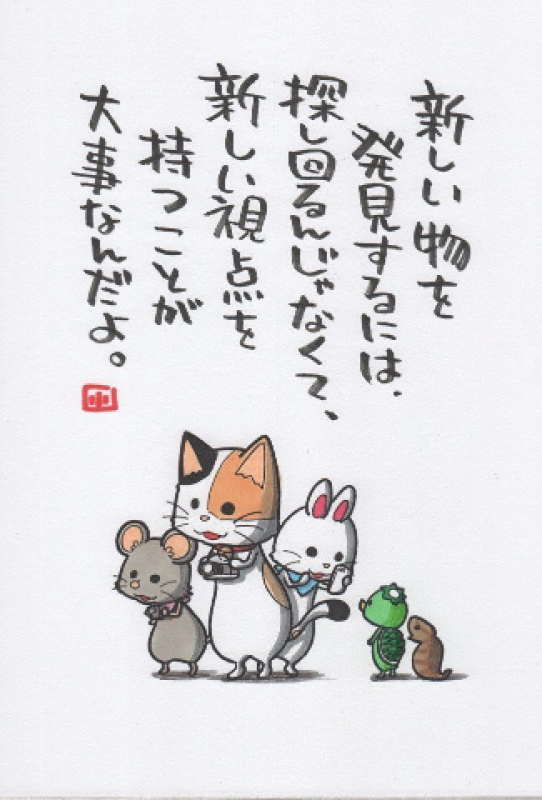 新しい物を
発見するには、
探し回るんじゃなくて、
新しい視点を
持つことが
大事なんだよ。